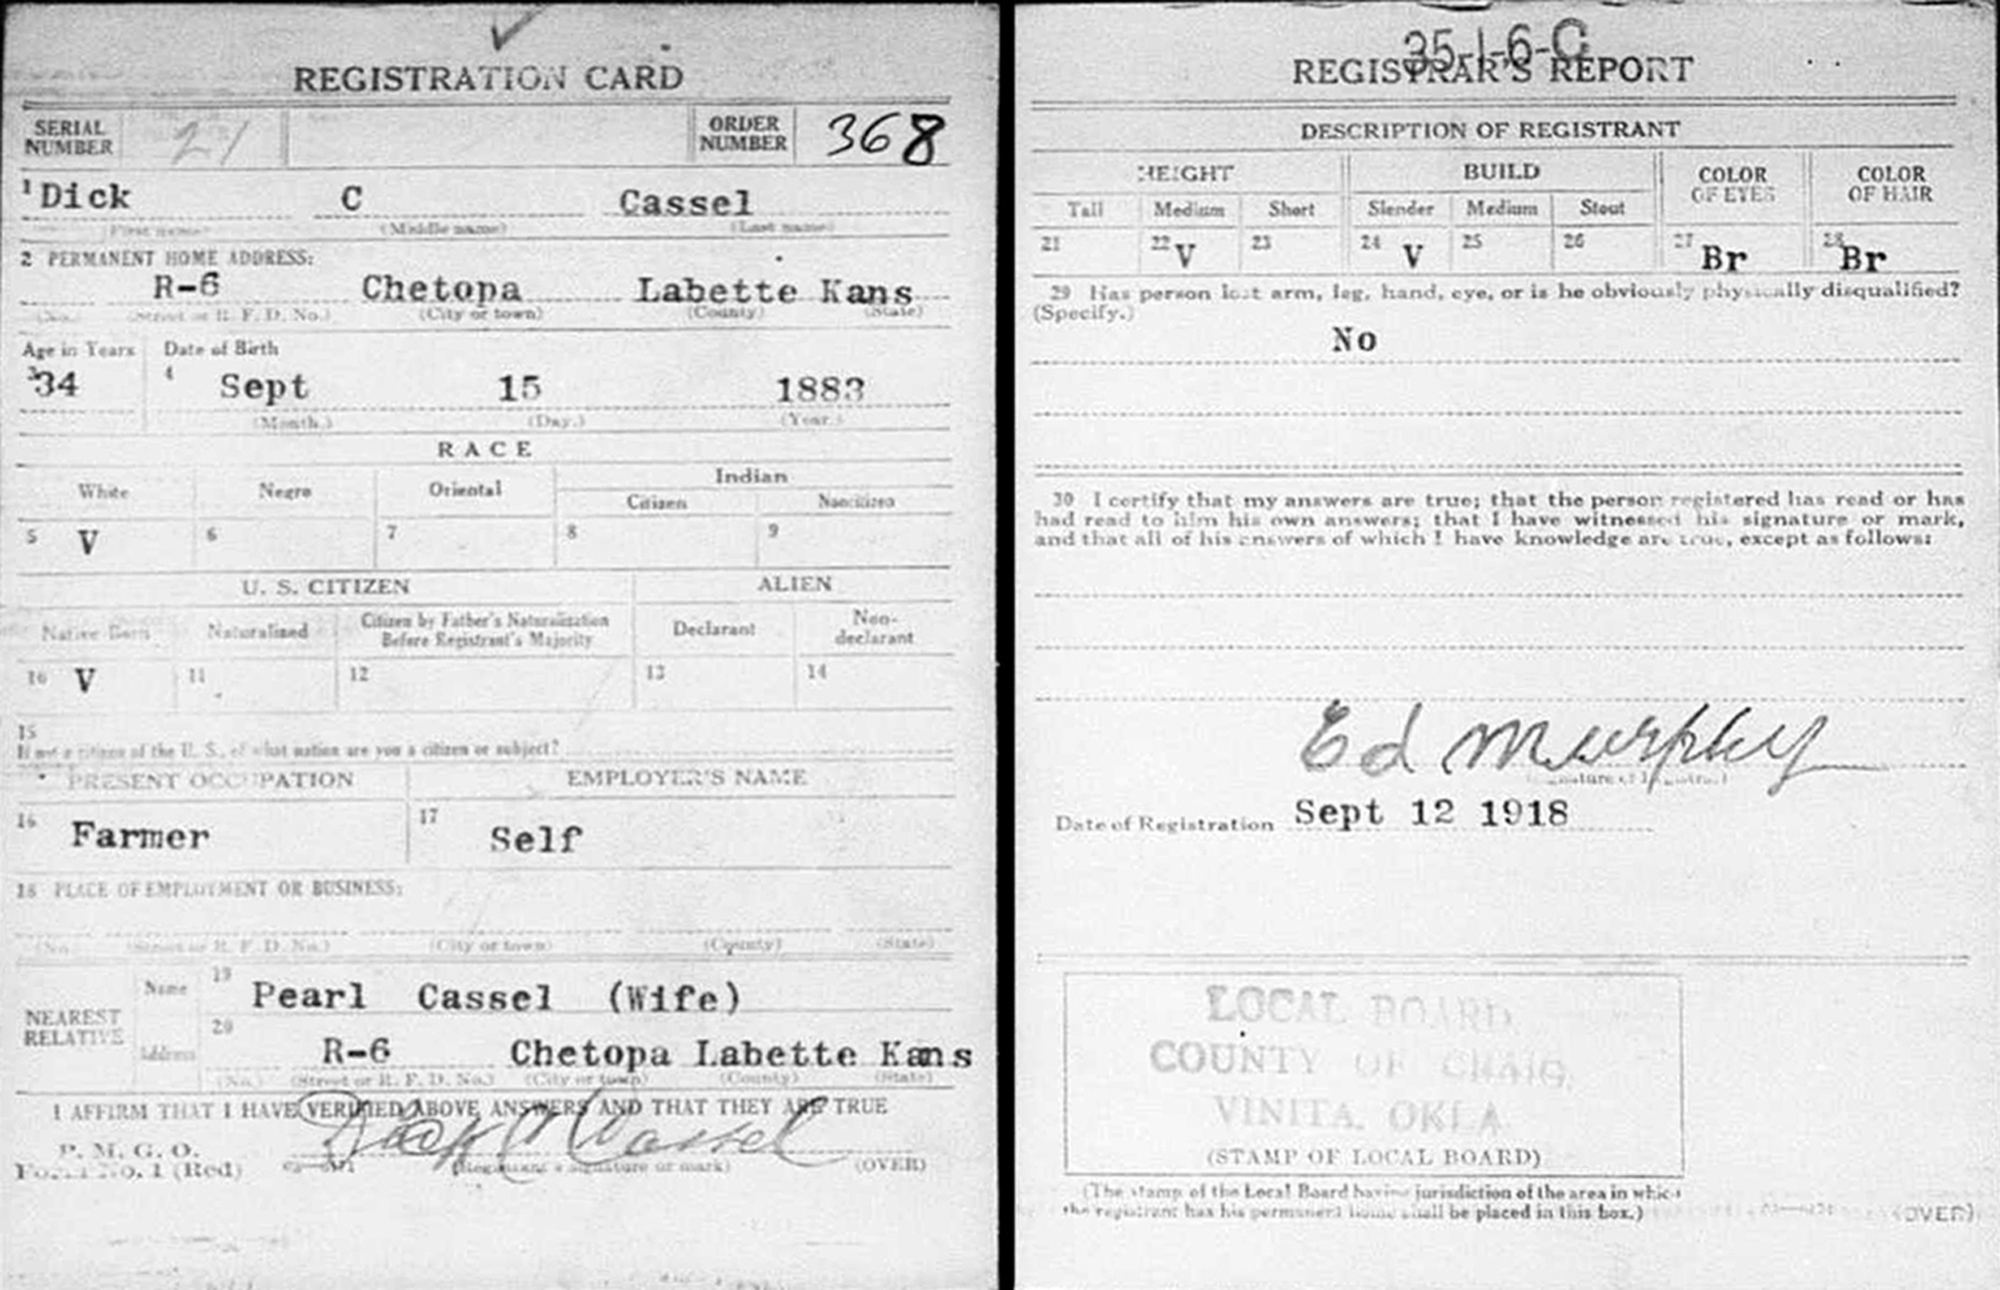 REGISTRATION CARD
SERIAL NUMBER 21 ORDER NUMBER 368
1 Dick C Cassel
(First name) (Middle name) (Last name)
2 PERMANENT HOME ADDRESS:
R-6 Chetopa Labette Kans
(No.) (Street or R. F. D. No.) (City or town) (County) (State)
Age in Years Date of Birth
3 34 4 Sept 15 1883
(Month.) (Day.) (Year.)
RACE
White Negro Oriental Indian
Citizen Noncitizen
5 V 6 7 8 9
U. S. CITIZEN ALIEN
Native Born Naturalized Citizen by Father's Naturalization Before Registrant's Majority Declarant Non-declarant
10 V 11 12 13 14
15
If not a citizen of the U. S., of what nation are you a citizen or subject?
PRESENT OCCUPATION EMPLOYER'S NAME
16 Farmer 17 Self
18 PLACE OF EMPLOYMENT OR BUSINESS:
(No.) (Street or R. F. D. No.) (City or town) (County) (State)
NEAREST RELATIVE Name 19 Pearl Cassel (Wife)
Address 20 R-6 Chetopa Labette Kans
(No.) (Street or R. F. D. No.) (City or town) (County) (State)
I AFFIRM THAT I HAVE VERIFIED ABOVE ANSWERS AND THAT THEY ARE TRUE
P. M. G. O.
Form No. 1 (Red) Dick C Cassel
(Registrant's signature or mark) (OVER)
35-1-6-C
REGISTRAR'S REPORT
DESCRIPTION OF REGISTRANT
HEIGHT BUILD COLOR OF EYES COLOR OF HAIR
Tall Medium Short Slender Medium Stout
21 22 V 23 24 V 25 26 27 Br 28 Br
29 Has person lost arm, leg, hand, eye, or is he obviously physically disqualified?
(Specify.)
No
30 I certify that my answers are true; that the person registered has read or has
had read to him his own answers; that I have witnessed his signature or mark,
and that all of his answers of which I have knowledge are true, except as follows:
Ed Murphy
(Signature of Registrar)
Date of Registration Sept 12 1918
LOCAL BOARD
COUNTY OF CRAIG,
VINITA, OKLA.
(STAMP OF LOCAL BOARD)
(The stamp of the Local Board having jurisdiction of the area in which
the registrant has his permanent home shall be placed in this box.)
(OVER)